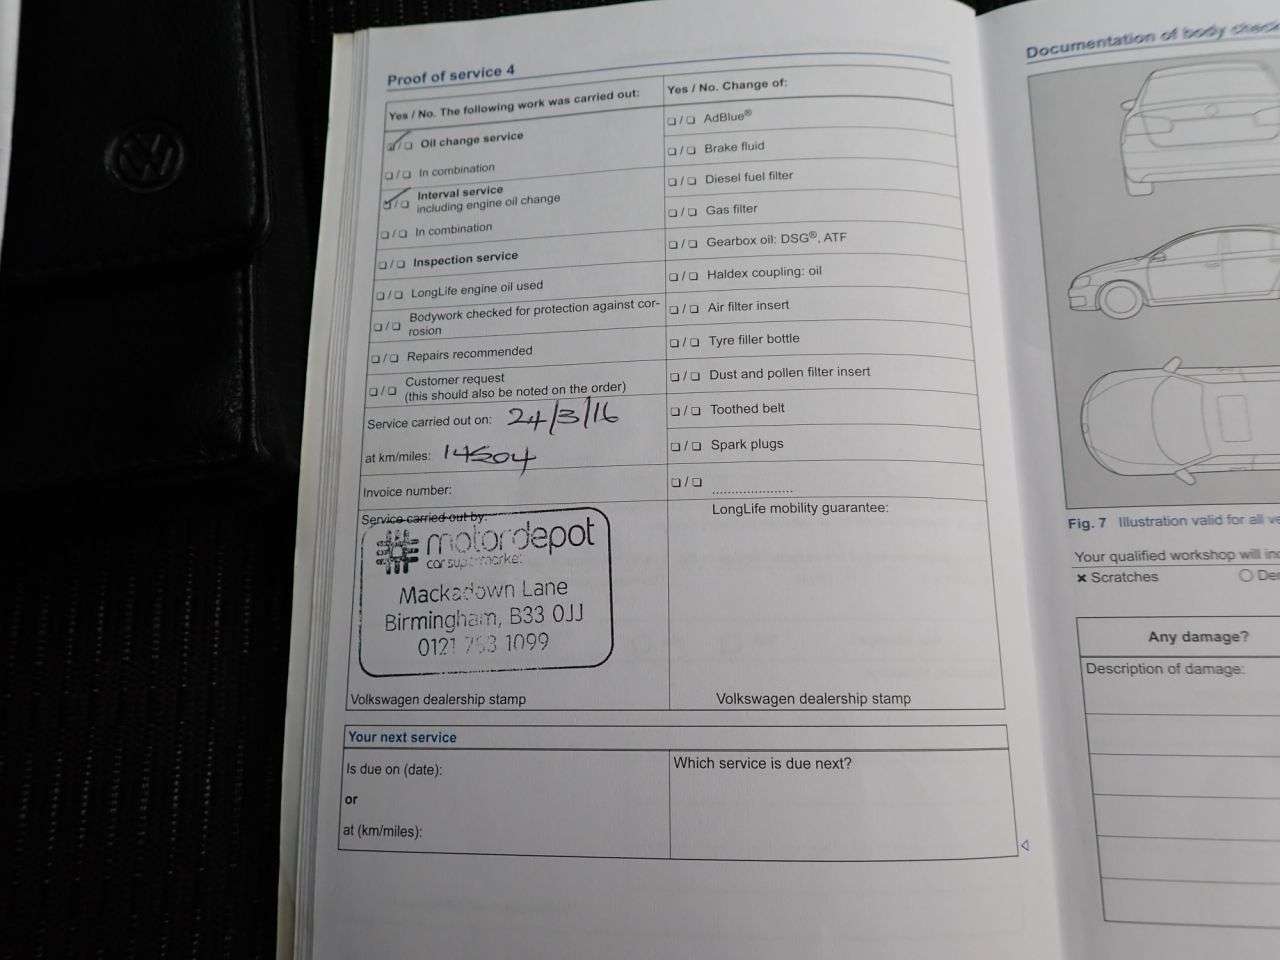 Proof of service 4
Yes / No. The following work was carried out:
❑ / ❑ Oil change service
❑ / ❑ In combination
❑ / ❑ Interval service
including engine oil change
❑ / ❑ In combination
❑ / ❑ Inspection service
❑ / ❑ LongLife engine oil used
❑ / ❑ Bodywork checked for protection against cor-
rosion
❑ / ❑ Repairs recommended
❑ / ❑ Customer request
(this should also be noted on the order)
Service carried out on: 24/3/16
at km/miles: 14504
Invoice number:
Service carried out by:
motordepot
car supermarket
Mackadown Lane
Birmingham, B33 0JJ
0121 1099
Volkswagen dealership stamp
Yes / No. Change of:
❑ / ❑ AdBlue®
❑ / ❑ Brake fluid
❑ / ❑ Diesel fuel filter
❑ / ❑ Gas filter
❑ / ❑ Gearbox oil: DSG®, ATF
❑ / ❑ Haldex coupling: oil
❑ / ❑ Air filter insert
❑ / ❑ Tyre filler bottle
❑ / ❑ Dust and pollen filter insert
❑ / ❑ Toothed belt
❑ / ❑ Spark plugs
❑ / ❑ .....................
LongLife mobility guarantee:
Volkswagen dealership stamp
Your next service
Is due on (date):
or
at (km/miles):
Which service is due next?
Documentation of body
Fig. 7 Illustration valid for all
Your qualified workshop will
× Scratches
Any damage?
Description of damage: